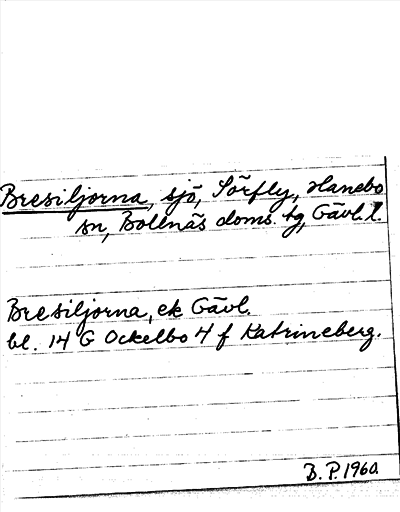 Bresiljorna, sjö, Sörfly, Hanebo
sn, Bollnäs doms. tg, Gävl. l.
Bresiljorna, ek Gävl.
bl. 14 G Ockelbo 4 f Katrineberg.
B. P. 1960